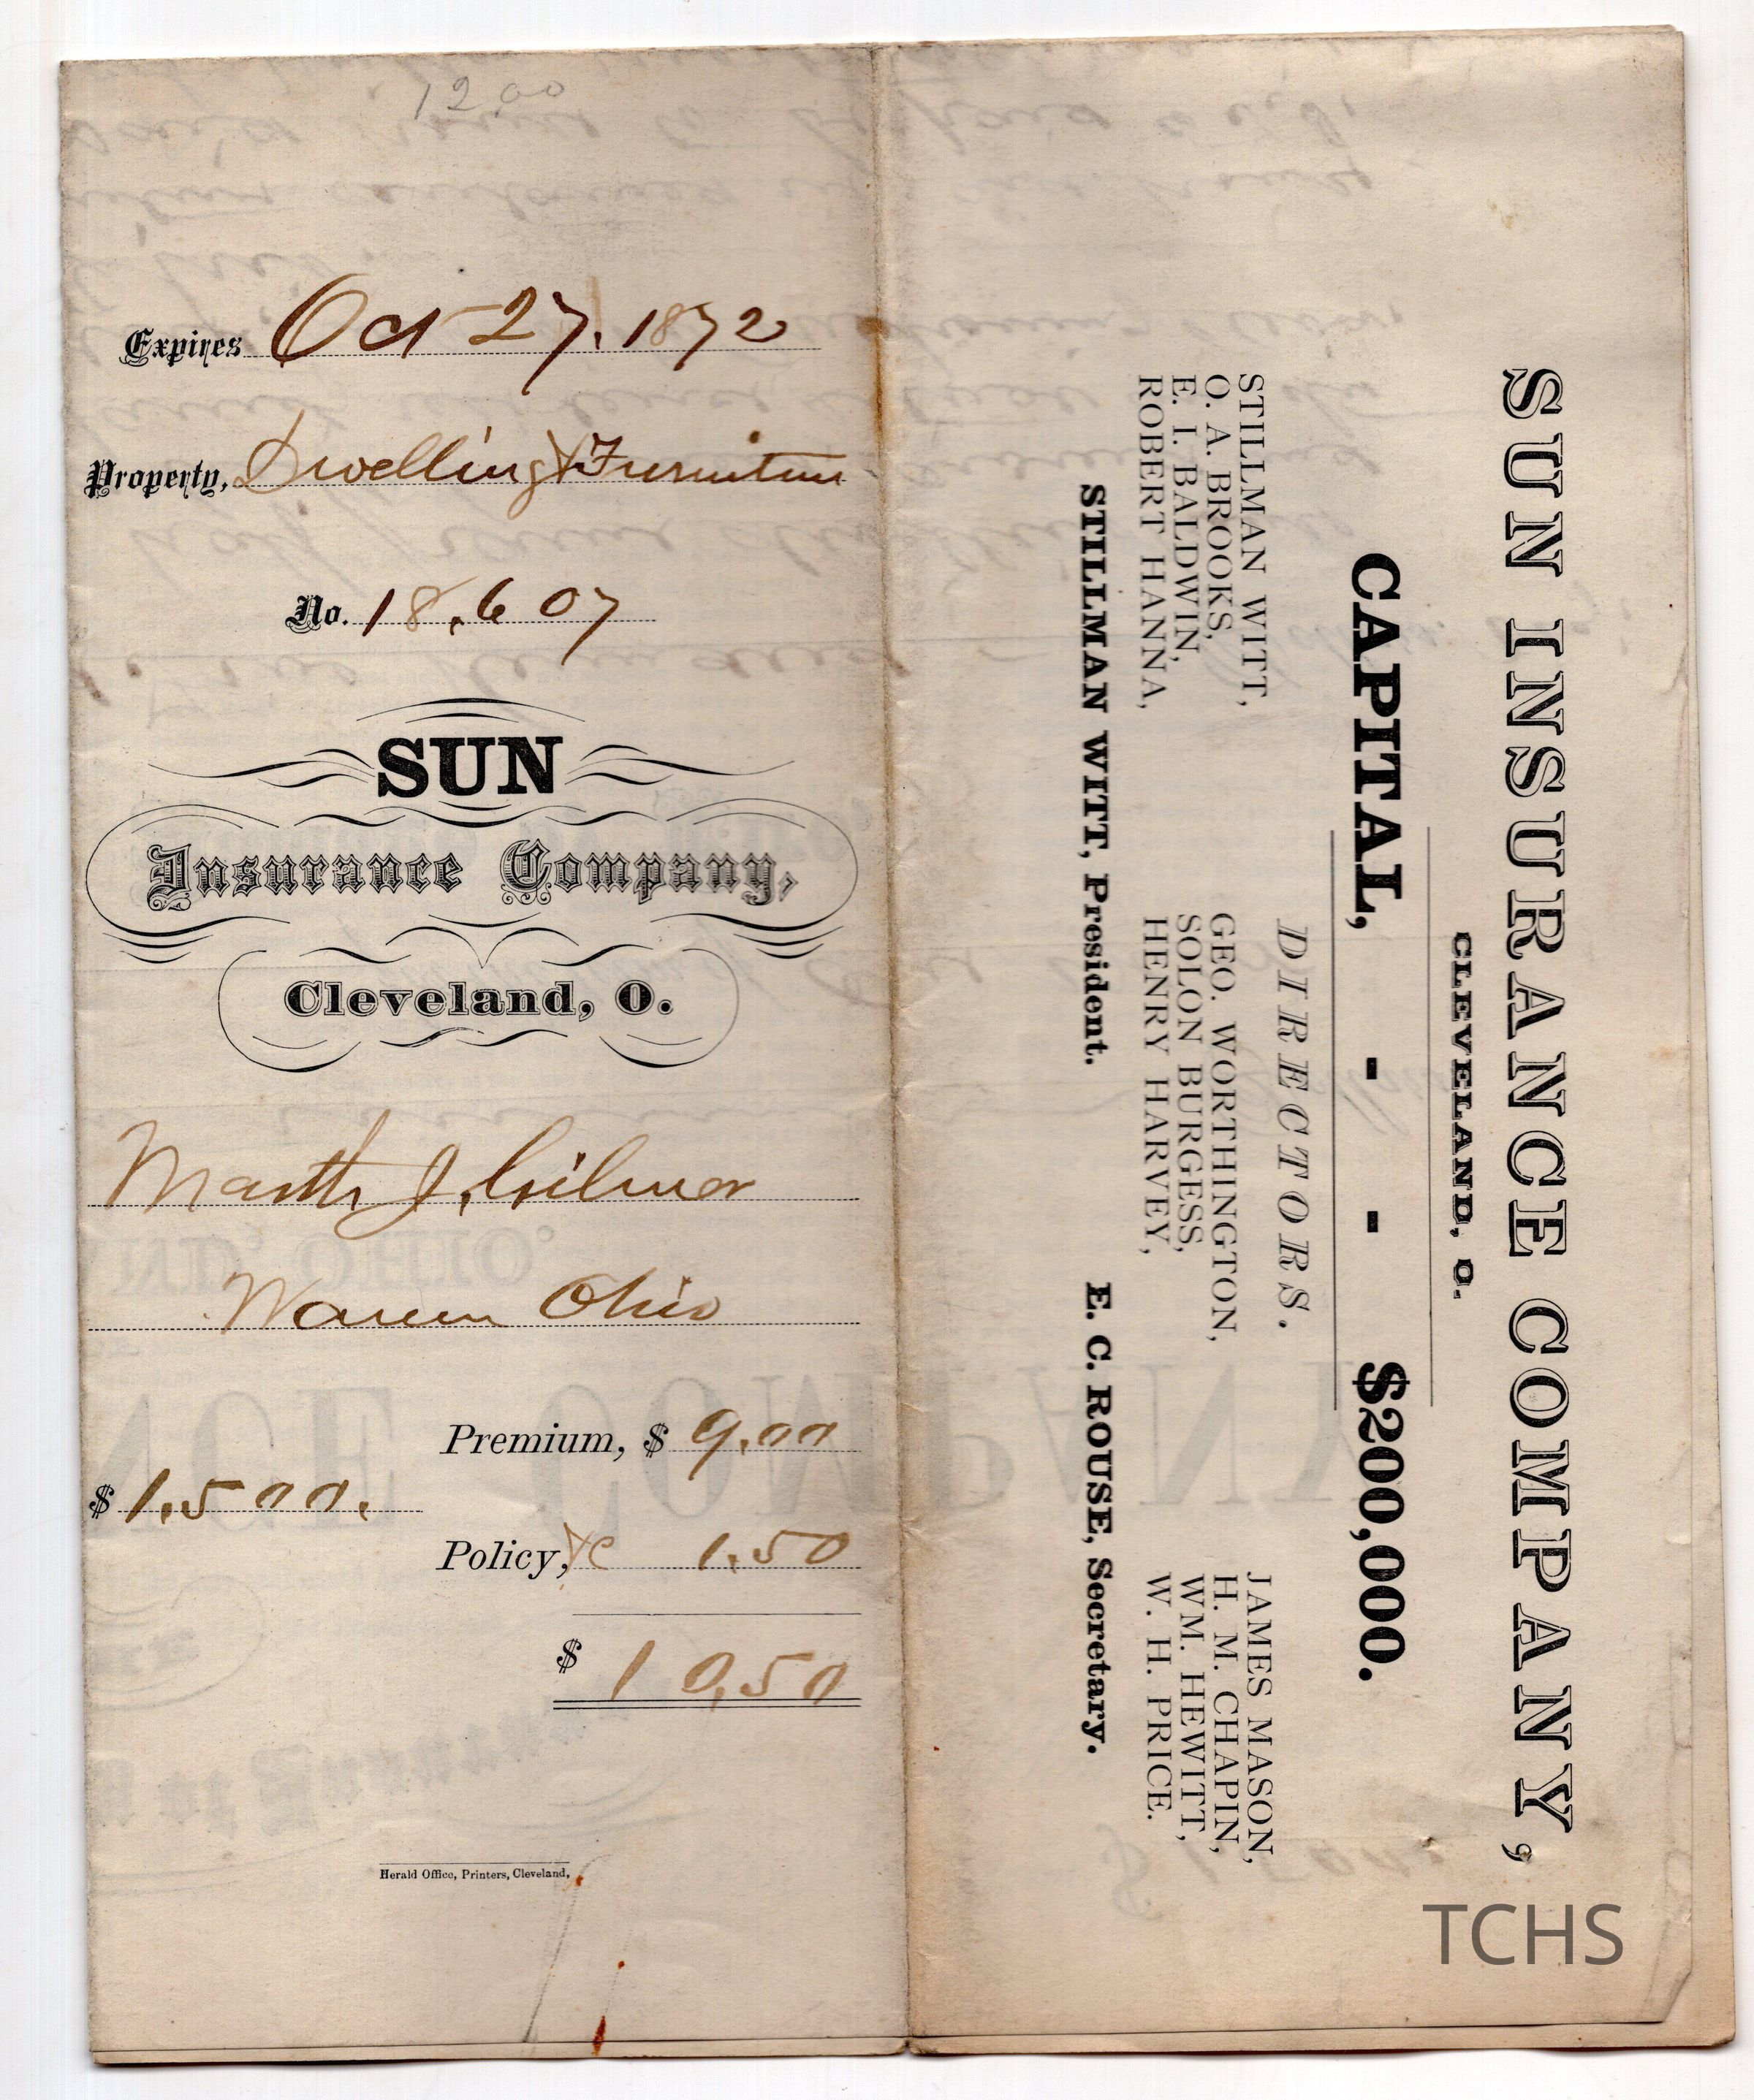 12.00
Expires Oct 27. 1872
Property, Dwelling & Furniture
No. 18.607
SUN
Insurance Company,
Cleveland, O.
Martha J. Gilmer
Warren Ohio
Premium, $ 9.00
$ 1,500.
Policy, &c 1.50
$ 10.50
Herald Office, Printers, Cleveland,
SUN INSURANCE COMPANY,
CLEVELAND, O.
CAPITAL, - - $200,000.
DIRECTORS.
STILLMAN WITT,
O. A. BROOKS,
E. I. BALDWIN,
ROBERT HANNA,
GEO. WORTHINGTON,
SOLON BURGESS,
HENRY HARVEY,
JAMES MASON,
H. M. CHAPIN,
WM. HEWITT,
W. H. PRICE.
STILLMAN WITT, President. E. C. ROUSE, Secretary.
TCHS